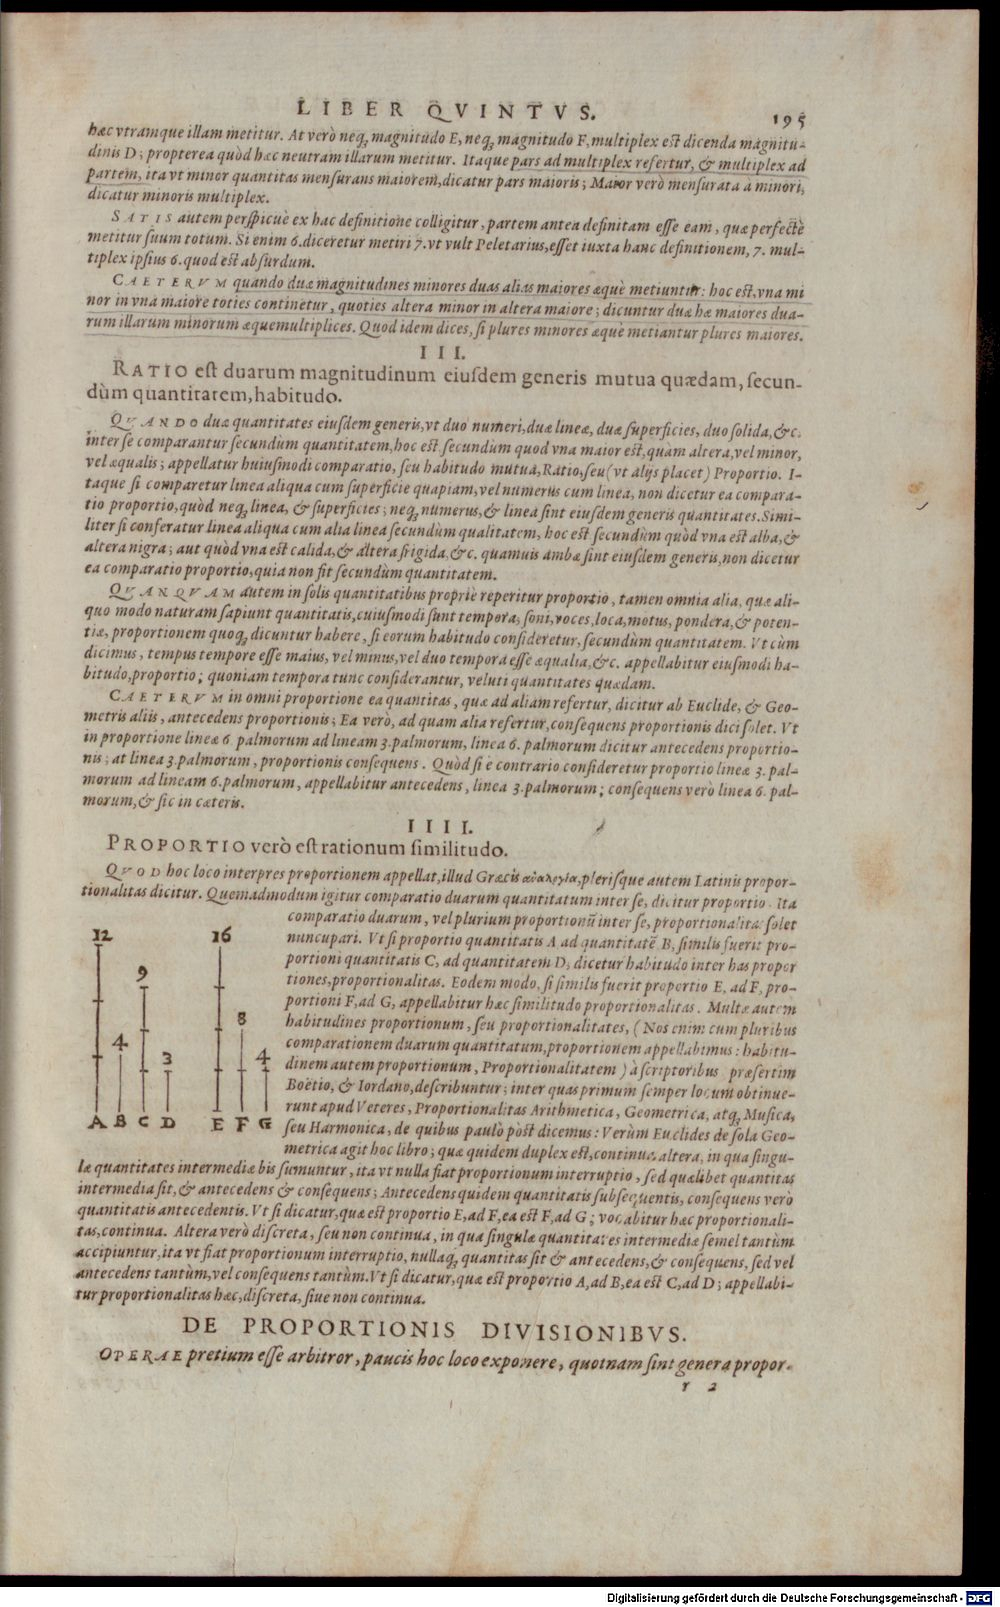 LIBER QVINTVS. 195
hæc vtramque illam metitur. At verò neq; magnitudo E, neq; magnitudo F, multiplex est dicenda magnitu-
dinis D; propterea quòd hæc neutram illarum metitur. Itaque pars ad multiplex refertur, & multiplex ad
partem, ita vt minor quantitas mensurans maiorem, dicatur pars maioris; Maior verò mensurata à minori,
dicatur minoris multiplex.
SATIS autem perspicuè ex hac definitione colligitur, partem antea definitam esse eam, quæ perfectè
metitur suum totum. Si enim 6. diceretur metiri 7. vt vult Peletarius, esset iuxta hanc definitionem, 7. mul-
tiplex ipsius 6. quod est absurdum.
CAETERVM quando duæ magnitudines minores duas alias maiores æquè metiuntur: hoc est, vna mi
nor in vna maiore toties continetur, quoties altera minor in altera maiore; dicuntur duæ hæ maiores dua-
rum illarum minorum æquemultiplices. Quod idem dices, si plures minores æquè metiantur plures maiores.
III.
RATIO est duarum magnitudinum eiusdem generis mutua quædam, secun-
dùm quantitatem, habitudo.
QVANDO duæ quantitates eiusdem generis, vt duo numeri, duæ lineæ, duæ superficies, duo solida, &c.
inter se comparantur secundùm quantitatem, hoc est, secundùm quod vna maior est, quàm altera, vel minor,
vel æqualis; appellatur huiusmodi comparatio, seu habitudo mutua, Ratio, seu (vt alijs placet) Proportio. I-
taque si comparetur linea aliqua cum superficie quapiam, vel numerus cum linea, non dicetur ea compara-
tio proportio, quòd neq; linea, & superficies; neq; numerus, & linea sint eiusdem generis quantitates. Simi-
liter si conferatur linea aliqua cum alia linea secundùm qualitatem, hoc est secundùm quòd vna est alba, &
altera nigra; aut quòd vna est calida, & altera frigida, &c. quamuis ambæ sint eiusdem generis, non dicetur
ea comparatio proportio, quia non fit secundùm quantitatem.
QVANQVAM autem in solis quantitatibus propriè reperitur proportio, tamen omnia alia, quæ ali-
quo modo naturam sapiunt quantitatis, cuiusmodi sunt tempora, soni, voces, loca, motus, pondera, & poten-
tiæ, proportionem quoq; dicuntur habere, si eorum habitudo consideretur, secundùm quantitatem. Vt cùm
dicimus, tempus tempore esse maius, vel minus, vel duo tempora esse æqualia, &c. appellabitur eiusmodi ha-
bitudo, proportio; quoniam tempora tunc considerantur, veluti quantitates quædam.
CAETERVM in omni proportione ea quantitas, quæ ad aliam refertur, dicitur ab Euclide, & Geo-
metris aliis, antecedens proportionis; Ea verò, ad quam alia refertur, consequens proportionis dici solet. Vt
in proportione lineæ 6. palmorum ad lineam 3. palmorum, linea 6. palmorum dicitur antecedens proportio-
nis; at linea 3. palmorum, proportionis consequens. Quòd si è contrario consideretur proportio lineæ 3. pal-
morum ad lineam 6. palmorum, appellabitur antecedens, linea 3. palmorum; consequens verò linea 6. pal-
morum, & sic in cæteris.
IIII.
PROPORTIO verò est rationum similitudo.
QVOD hoc loco interpres proportionem appellat, illud Græcis ἀναλογία, plerisque autem Latinis propor-
tionalitas dicitur. Quemadmodum igitur comparatio duarum quantitatum inter se, dicitur proportio. Ita
comparatio duarum, vel plurium proportionũ inter se, proportionalitas solet
nuncupari. Vt si proportio quantitatis A ad quantitatẽ B, similis fuerit pro-
portioni quantitatis C, ad quantitatem D, dicetur habitudo inter has propor
tiones, proportionalitas. Eodem modo, si similis fuerit proportio E, ad F, pro-
portioni F, ad G, appellabitur hæc similitudo proportionalitas. Multæ autem
habitudines proportionum, seu proportionalitates, (Nos enim cum pluribus
comparationem duarum quantitatum, proportionem appellabimus: habitu-
dinem autem proportionum, Proportionalitatem) à scriptoribus præsertim
Boëtio, & Iordano, describuntur; inter quas primum semper locum obtinue-
runt apud Veteres, Proportionalitas Arithmetica, Geometrica, atq; Musica,
seu Harmonica, de quibus paulò pòst dicemus: Verùm Euclides de sola Geo-
metrica agit hoc libro; quæ quidem duplex est, continua altera, in qua singu-
læ quantitates intermediæ bis sumuntur, ita vt nulla fiat proportionum interruptio, sed quælibet quantitas
intermedia sit, & antecedens & consequens; Antecedens quidem quantitatis subsequentis, consequens verò
quantitatis antecedentis. Vt si dicatur, quæ est proportio E, ad F, ea est F, ad G; vocabitur hæc proportionali-
tas, continua. Altera verò discreta, seu non continua, in qua singulæ quantitates intermediæ semel tantùm
accipiuntur, ita vt fiat proportionum interruptio, nullaq; quantitas sit & antecedens, & consequens, sed vel
antecedens tantùm, vel consequens tantùm. Vt si dicatur, quæ est proportio A, ad B, ea est C, ad D; appellabi-
tur proportionalitas hæc, discreta, siue non continua.
12 16
9
8
4 3 4
A B C D E F G
DE PROPORTIONIS DIVISIONIBVS.
OPERAE pretium esse arbitror, paucis hoc loco exponere, quotnam sint genera propor-
r 2
Digitalisierung gefördert durch die Deutsche Forschungsgemeinschaft - DFG